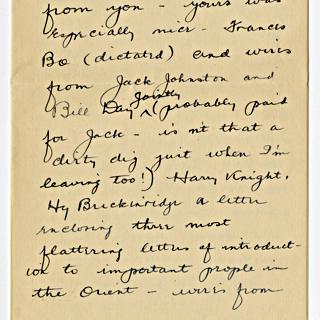 from you - yours was
especially nice - Frances
Bo (dictated) and wires
from Jack Johnston and
Bill Day ^ jointly (probably paid
for Jack - isn't that a
dirty dig just when I'm
leaving too!) Harry Knight,
Hy Breckinridge a letter
enclosing three most
flattering letters of introduct-
ion to important people in
the Orient - wires from